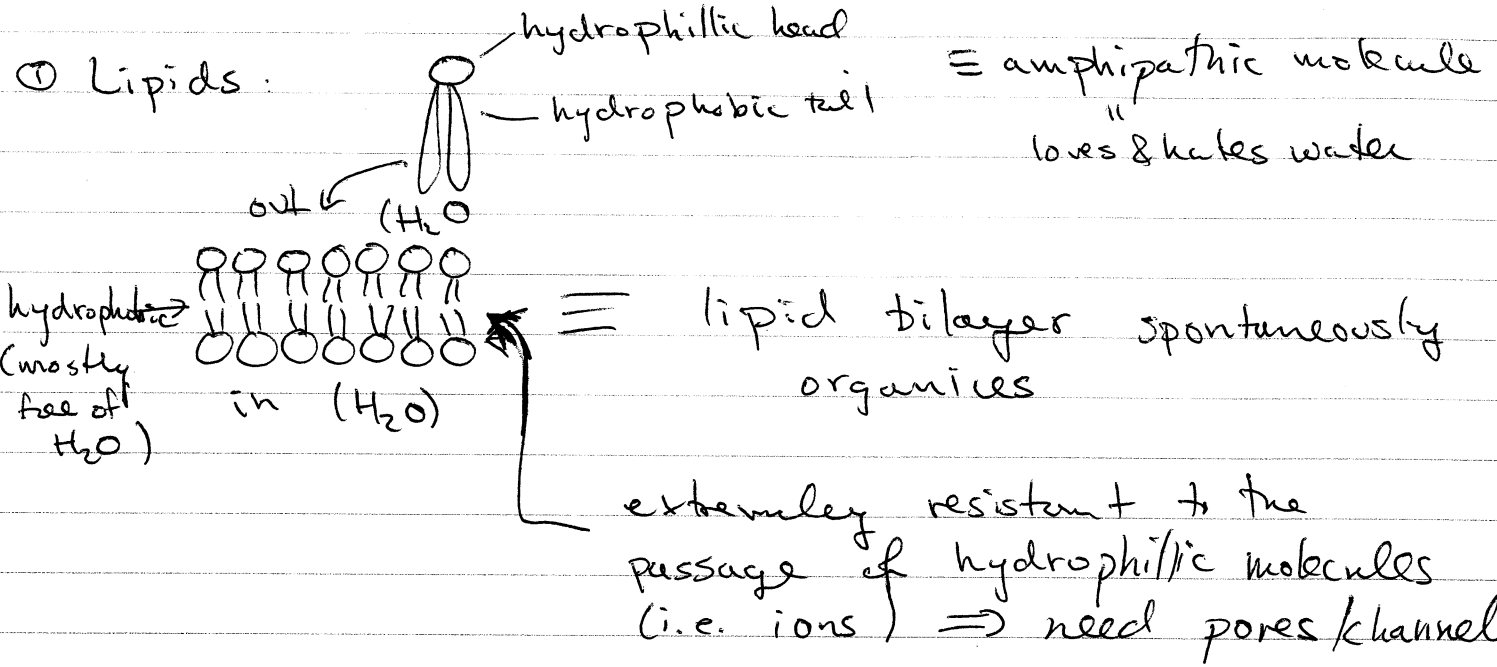 hydrophillic head
① Lipids:
≡ amphipathic molecule
hydrophobic tail
"
loves & hates water
out (H₂O
hydrophobic
(mostly
free of
H₂O)
in (H₂O)
≡ lipid bilayer spontaneously
organices
extremley resistant to the
passage of hydrophillic molecules
(i.e. ions) ⇒ need pores/channel